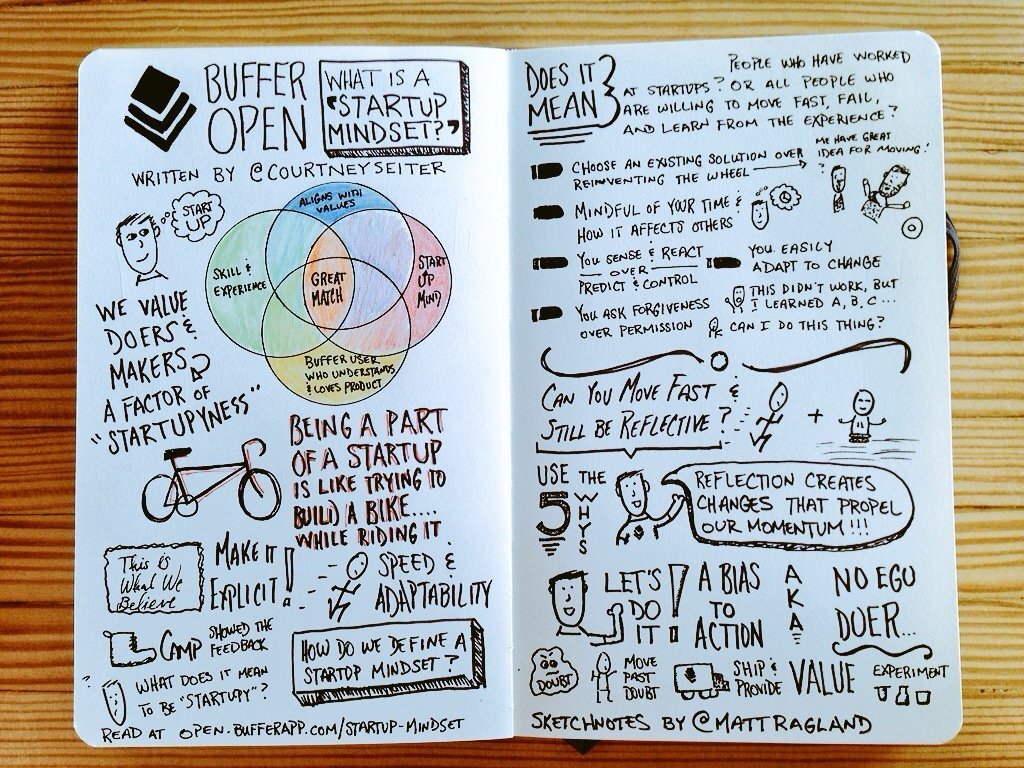 BUFFER
OPEN
WHAT IS A
"STARTUP
MINDSET?"
WRITTEN BY @COURTNEYSEITER
START
UP
ALIGNS WITH
VALUES
SKILL &
EXPERIENCE
GREAT
MATCH
START
UP
MIND
BUFFER USER
WHO UNDERSTANDS
& LOVES PRODUCT
WE VALUE
DOERS &
MAKERS
A FACTOR OF
"STARTUPYNESS"
BEING A PART
OF A STARTUP
IS LIKE TRYING TO
BUILD A BIKE....
WHILE RIDING IT
This is
What We
Believe
MAKE IT
EXPLICIT!
SPEED &
ADAPTABILITY
CAMP SHOWED THE
FEEDBACK
HOW DO WE DEFINE A
STARTUP MINDSET?
?
WHAT DOES IT MEAN
TO BE "STARTUPY"?
READ AT OPEN.BUFFERAPP.COM/STARTUP-MINDSET
DOES IT
MEAN
PEOPLE WHO HAVE WORKED
AT STARTUPS? OR ALL PEOPLE WHO
ARE WILLING TO MOVE FAST, FAIL,
AND LEARN FROM THE EXPERIENCE?
CHOOSE AN EXISTING SOLUTION OVER
REINVENTING THE WHEEL
ME HAVE GREAT
IDEA FOR MOVING!
?
MINDFUL OF YOUR TIME &
HOW IT AFFECTS OTHERS
YOU SENSE & REACT
OVER
PREDICT & CONTROL
YOU EASILY
ADAPT TO CHANGE
YOU ASK FORGIVENESS
OVER PERMISSION
THIS DIDN'T WORK, BUT
I LEARNED A, B, C...
CAN I DO THIS THING?
CAN YOU MOVE FAST &
STILL BE REFLECTIVE?
+
USE THE
5
WHYS
REFLECTION CREATES
CHANGES THAT PROPEL
OUR MOMENTUM!!!
LET'S
DO
IT!
A BIAS
TO
ACTION
AKA
NO EGO
DOER...
DOUBT
MOVE
PAST
DOUBT
SHIP &
PROVIDE
VALUE
EXPERIMENT
SKETCHNOTES BY @MATTRAGLAND